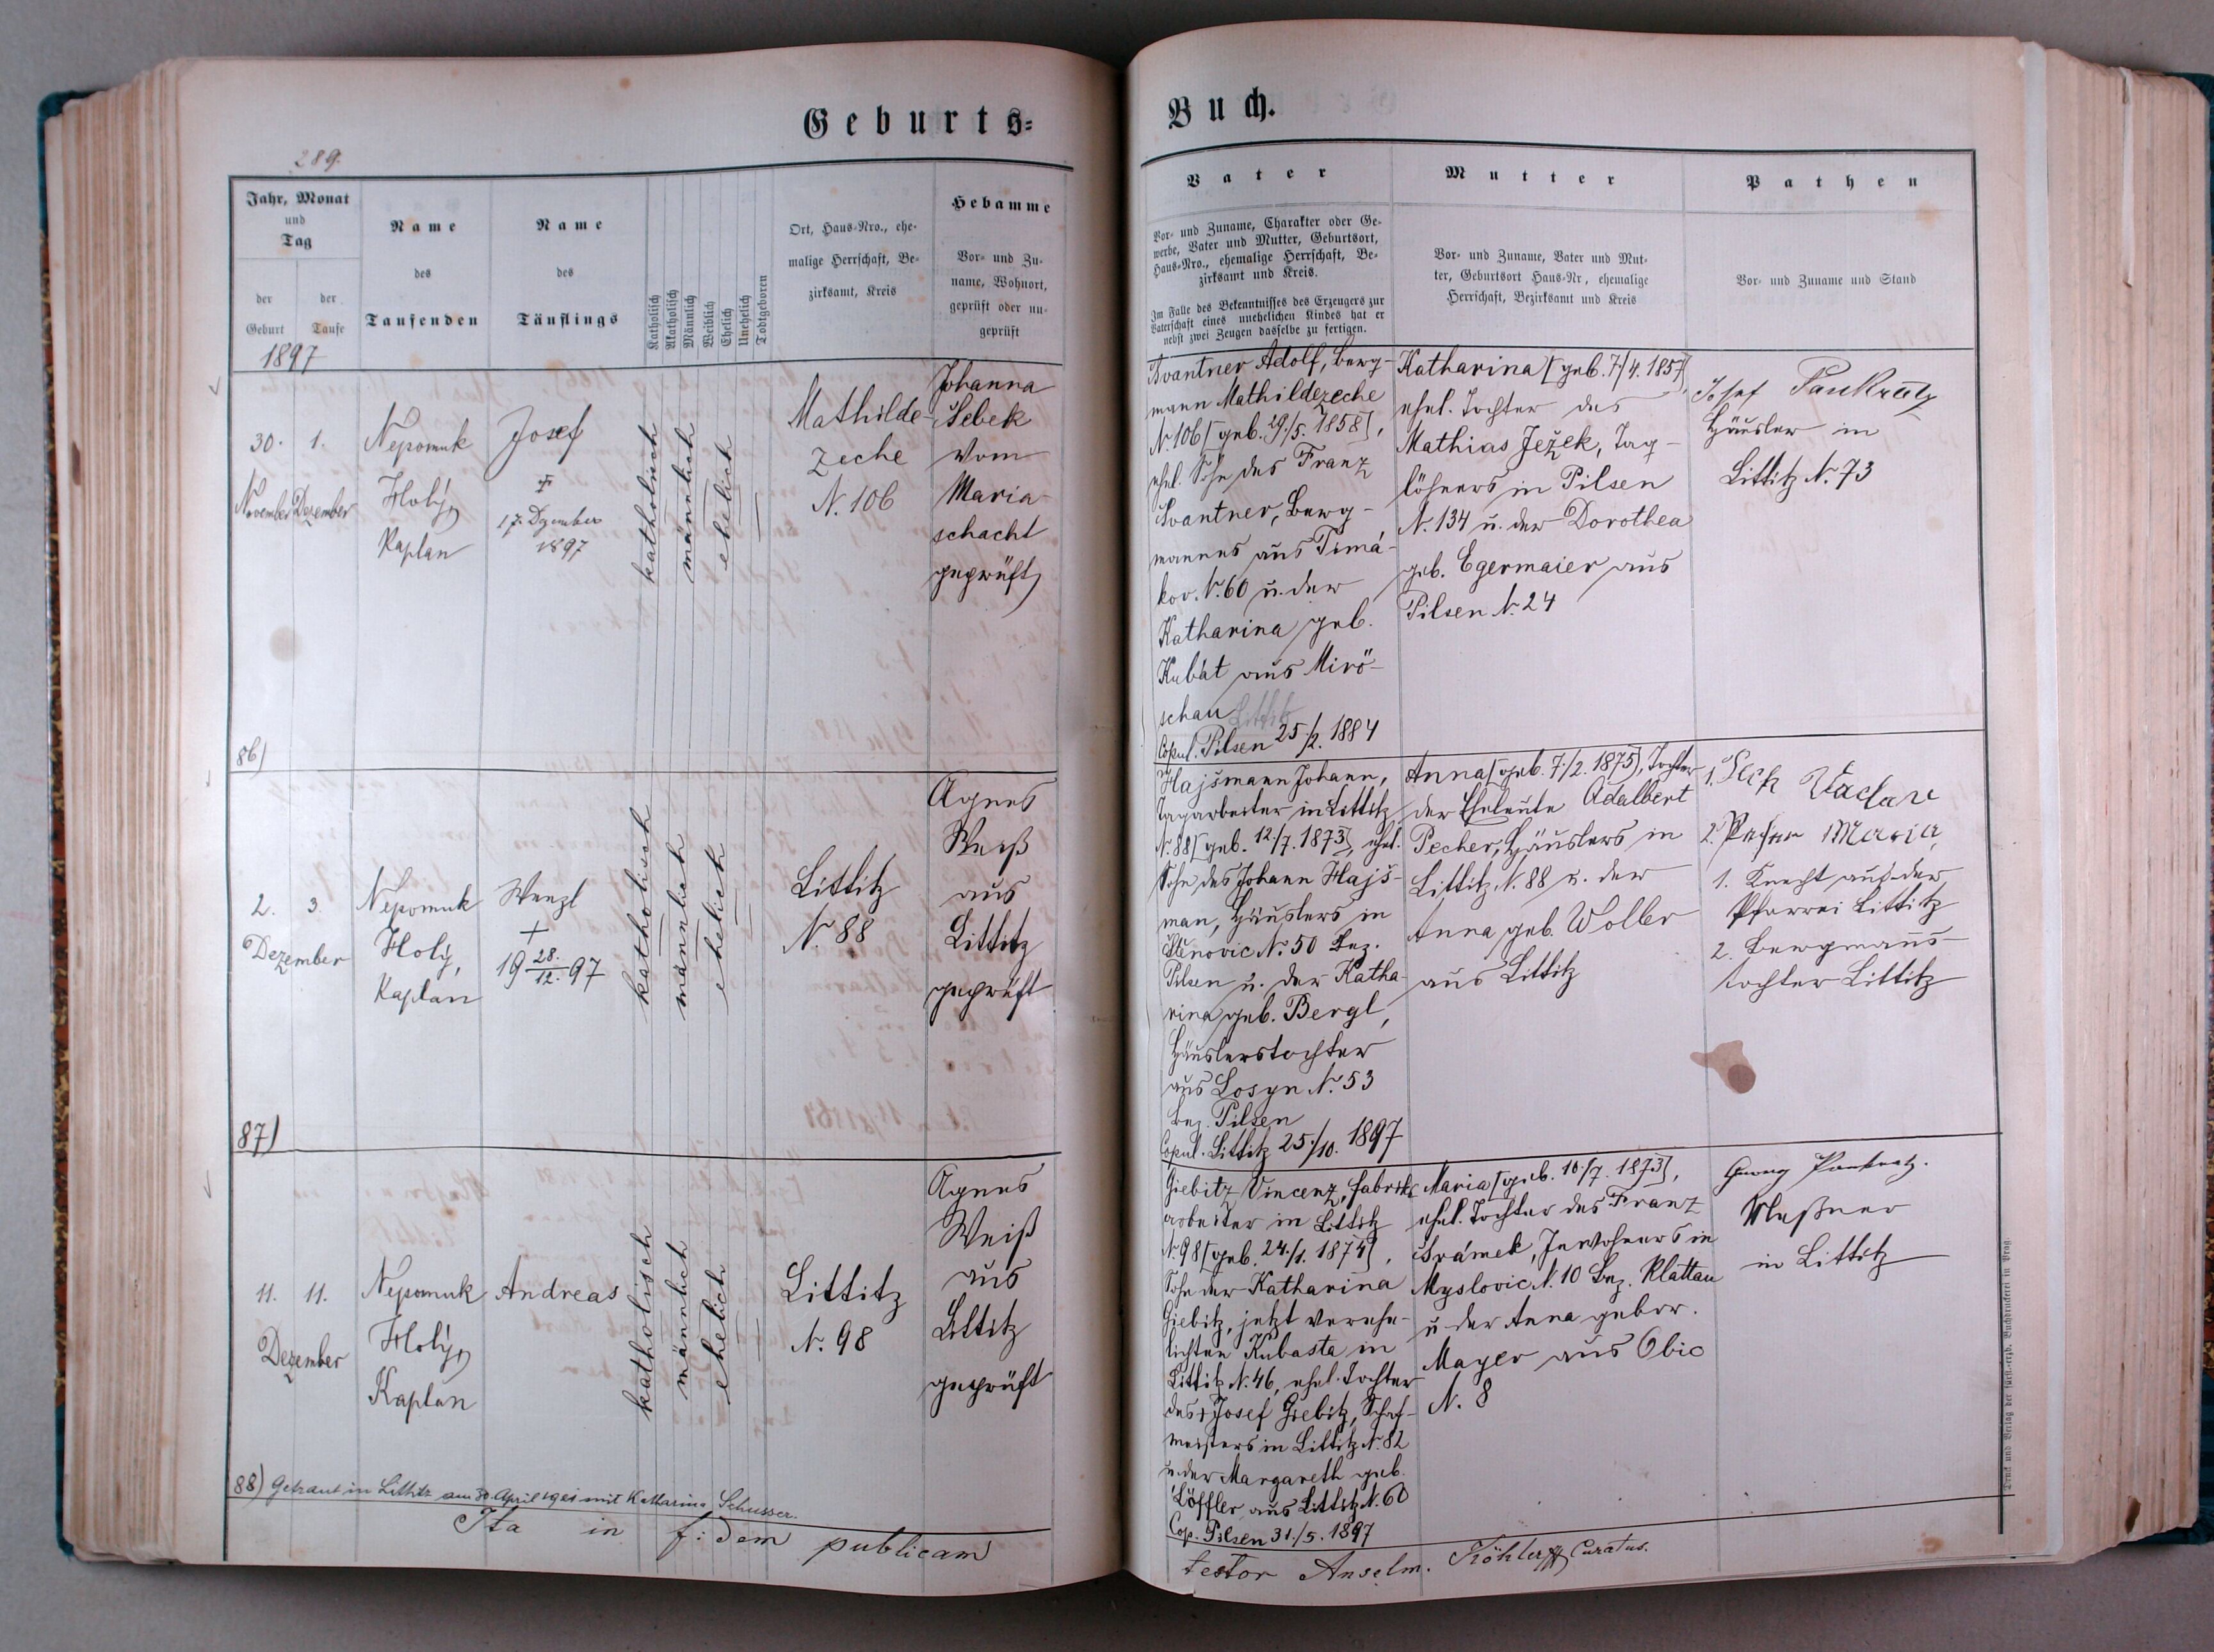 Geburts=
Buch.
289.
Jahr, Monat
und
Tag
der
Geburt
der
Taufe
Name
des
Taufenden
Name
des
Täuflings
Katholisch
Akatholisch
Männlich
Weiblich
Ehelich
Unehelich
Todtgeboren
Ort, Haus-Nro., ehe-
malige Herrschaft, Be-
zirksamt, Kreis
Hebamme
Vor- und Zu-
name, Wohnort,
geprüft oder un-
geprüft
Vater
Vor- und Zuname, Charakter oder Ge-
werbe, Vater und Mutter, Geburtsort,
Haus-Nro., ehemalige Herrschaft, Be-
zirksamt und Kreis.
Im Falle des Bekenntnisses des Erzeugers zur
Vaterschaft eines unehelichen Kindes hat er
nebst zwei Zeugen dasselbe zu fertigen.
Mutter
Vor- und Zuname, Vater und Mut-
ter, Geburtsort Haus-Nr, ehemalige
Herrschaft, Bezirksamt und Kreis
Pathen
Vor- und Zuname und Stand
1897
30.
November
1.
Dezember
Nepomuk
Holý,
Kaplan
Josef
17. Dezember
1897
katholisch
männlich
ehelich
Mathilde-
zeche
N. 106
Johanna
Šebek
vom
Maria-
schacht
geprüft
Adolf, Berg-
mann Mathildezeche
N. 106 [geb. 29./5. 1858],
ehel. Sohn des Franz
Svantner, Berg-
mannes aus Timá-
kov. N. 60 u. der
Katharina geb.
Kubát aus Mirö-
schau Littitz
Copul. Pilsen 25/2. 1884
Katharina [geb. 7./4. 1857],
ehel. Tochter des
Mathias Ježek, Tag-
löhners in Pilsen
N. 134 u. der Dorothea
geb. Egermaier aus
Pilsen N. 24
Josef Pankratz
Häusler in
Littitz N. 73
86)
2.
3.
Dezember
Nepomuk
Holý,
Kaplan
Wenzl
+
19 28./12. 97
katholisch
männlich
ehelich
Littitz
N. 88
Agnes
Weiß
aus
Littitz
geprüft
Hajšmann Johann,
Tagarbeiter in Littitz
N. 88 [geb. 12./7. 1873], ehel.
Sohn des Johann Hajš-
man, Häuslers in
Štěnovic N. 50 Bez.
Pilsen u. der Katha-
rina geb. Bergl,
Häuslerstochter
aus Losyn N. 53
Bez. Pilsen
Copul. Littitz 25./10. 1897
Anna [geb. 7./2. 1875], Tochter
der Eheleute Adalbert
Pecher, Häuslers in
Littitz N. 88 u. der
Anna geb. Woller
aus Littitz
1. Václav
2. Maria,
1. Knecht aus der
Pfarrei Littitz
2. Bergmanns-
tochter Littitz
87)
11.
11.
Dezember
Nepomuk
Holý,
Kaplan
Andreas
katholisch
männlich
ehelich
Littitz
N. 98
Agnes
Weiß
aus
Littitz
geprüft
Giebitz Vincenz, Fabriks-
arbeiter in Littitz
N. 98 [geb. 24./1. 1874],
Sohn der Katharina
Giebitz, jetzt verehe-
lichten Kubasta in
Littitz N. 46, ehel. Tochter
des + Josef Giebitz, Schaf-
meisters in Littitz N. 82
u. der Margareth geb.
Löffler aus Littitz N. 60
Cop. Pilsen 31./5. 1897
Maria [geb. 10./7. 1873],
ehel. Tochter des Franz
Šrámek, Inwohners in
Myslovic N. 10 Bez. Klattau
u. der Anna gebor.
Mayer aus Obic
N. 8
Georg Pankratz.
Meßner
in Littitz
88) Getraut in Littitz am 30 April 1921 mit Katharina Schusser.
Ita in fidem publicam
testor Anselm. Köhler Curatus.
Druck und Verlag der fürst.-erzb. Buchdruckerei in Prag.